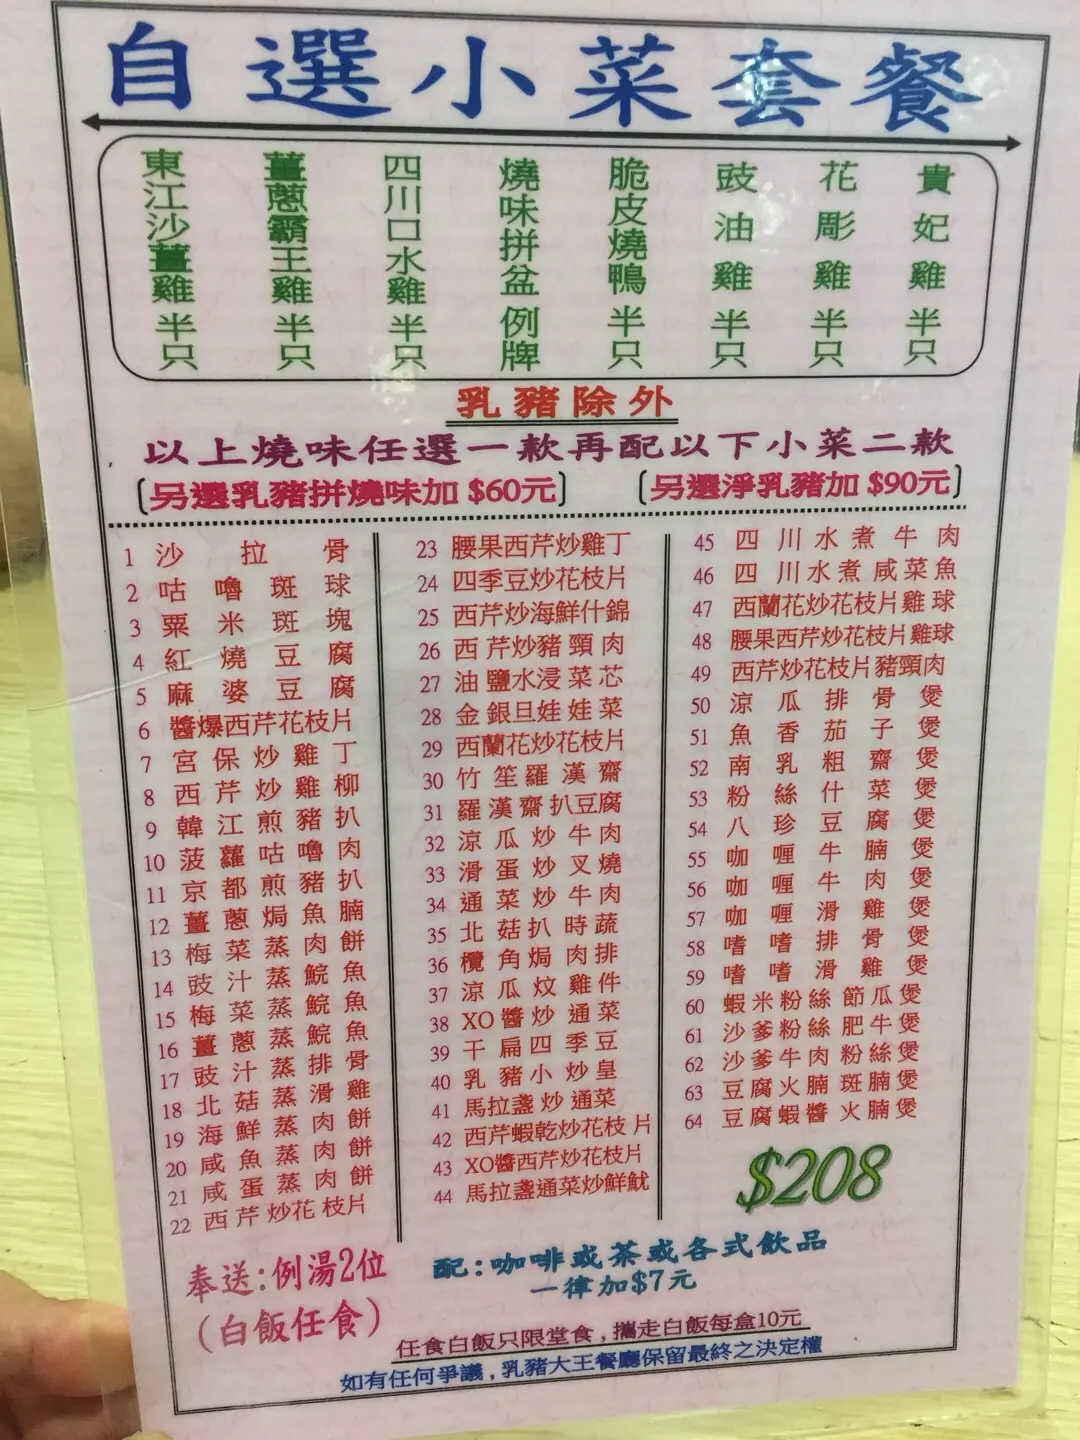 自選小菜套餐
東江沙薑雞半只
薑蔥霸王雞半只
四川口水雞半只
燒味拼盆例牌
脆皮燒鴨半只
豉油雞半只
花彫雞半只
貴妃雞半只
乳豬除外
以上燒味任選一款再配以下小菜二款
(另選乳豬拼燒味加 $60元) (另選淨乳豬加 $90元)
1 沙拉骨
2 咕嚕斑球
3 粟米斑塊
4 紅燒豆腐
5 麻婆豆腐
6 醬爆西芹花枝片
7 宮保炒雞丁
8 西芹炒雞柳
9 韓江煎豬扒
10 菠蘿咕嚕肉
11 京都煎豬扒
12 薑蔥焗魚腩
13 梅菜蒸肉餅
14 豉汁蒸鯇魚
15 梅菜蒸鯇魚
16 薑蔥蒸鯇魚
17 豉汁蒸排骨
18 北菇蒸滑雞
19 海鮮蒸肉餅
20 咸魚蒸肉餅
21 咸蛋蒸肉餅
22 西芹炒花枝片
23 腰果西芹炒雞丁
24 四季豆炒花枝片
25 西芹炒海鮮什錦
26 西芹炒豬頸肉
27 油鹽水浸菜芯
28 金銀旦娃娃菜
29 西蘭花炒花枝片
30 竹笙羅漢齋
31 羅漢齋扒豆腐
32 涼瓜炒牛肉
33 滑蛋炒叉燒
34 通菜炒牛肉
35 北菇扒時蔬
36 欖角焗肉排
37 涼瓜炆雞件
38 XO醬炒通菜
39 干扁四季豆
40 乳豬小炒皇
41 馬拉盞炒通菜
42 西芹蝦乾炒花枝片
43 XO醬西芹炒花枝片
44 馬拉盞通菜炒鮮魷
45 四川水煮牛肉
46 四川水煮咸菜魚
47 西蘭花炒花枝片雞球
48 腰果西芹炒花枝片雞球
49 西芹炒花枝片豬頸肉
50 涼瓜排骨煲
51 魚香茄子煲
52 南乳粗齋煲
53 粉絲什菜煲
54 八珍豆腐煲
55 咖喱牛腩煲
56 咖喱牛肉煲
57 咖喱滑雞煲
58 嗜嗜排骨煲
59 嗜嗜滑雞煲
60 蝦米粉絲節瓜煲
61 沙爹粉絲肥牛煲
62 沙爹牛肉粉絲煲
63 豆腐火腩斑腩煲
64 豆腐蝦醬火腩煲
$208
奉送:例湯2位
(白飯任食)
配:咖啡或茶或各式飲品
一律加$7元
任食白飯只限堂食,攜走白飯每盒10元
如有任何爭議,乳豬大王餐廳保留最終之決定權